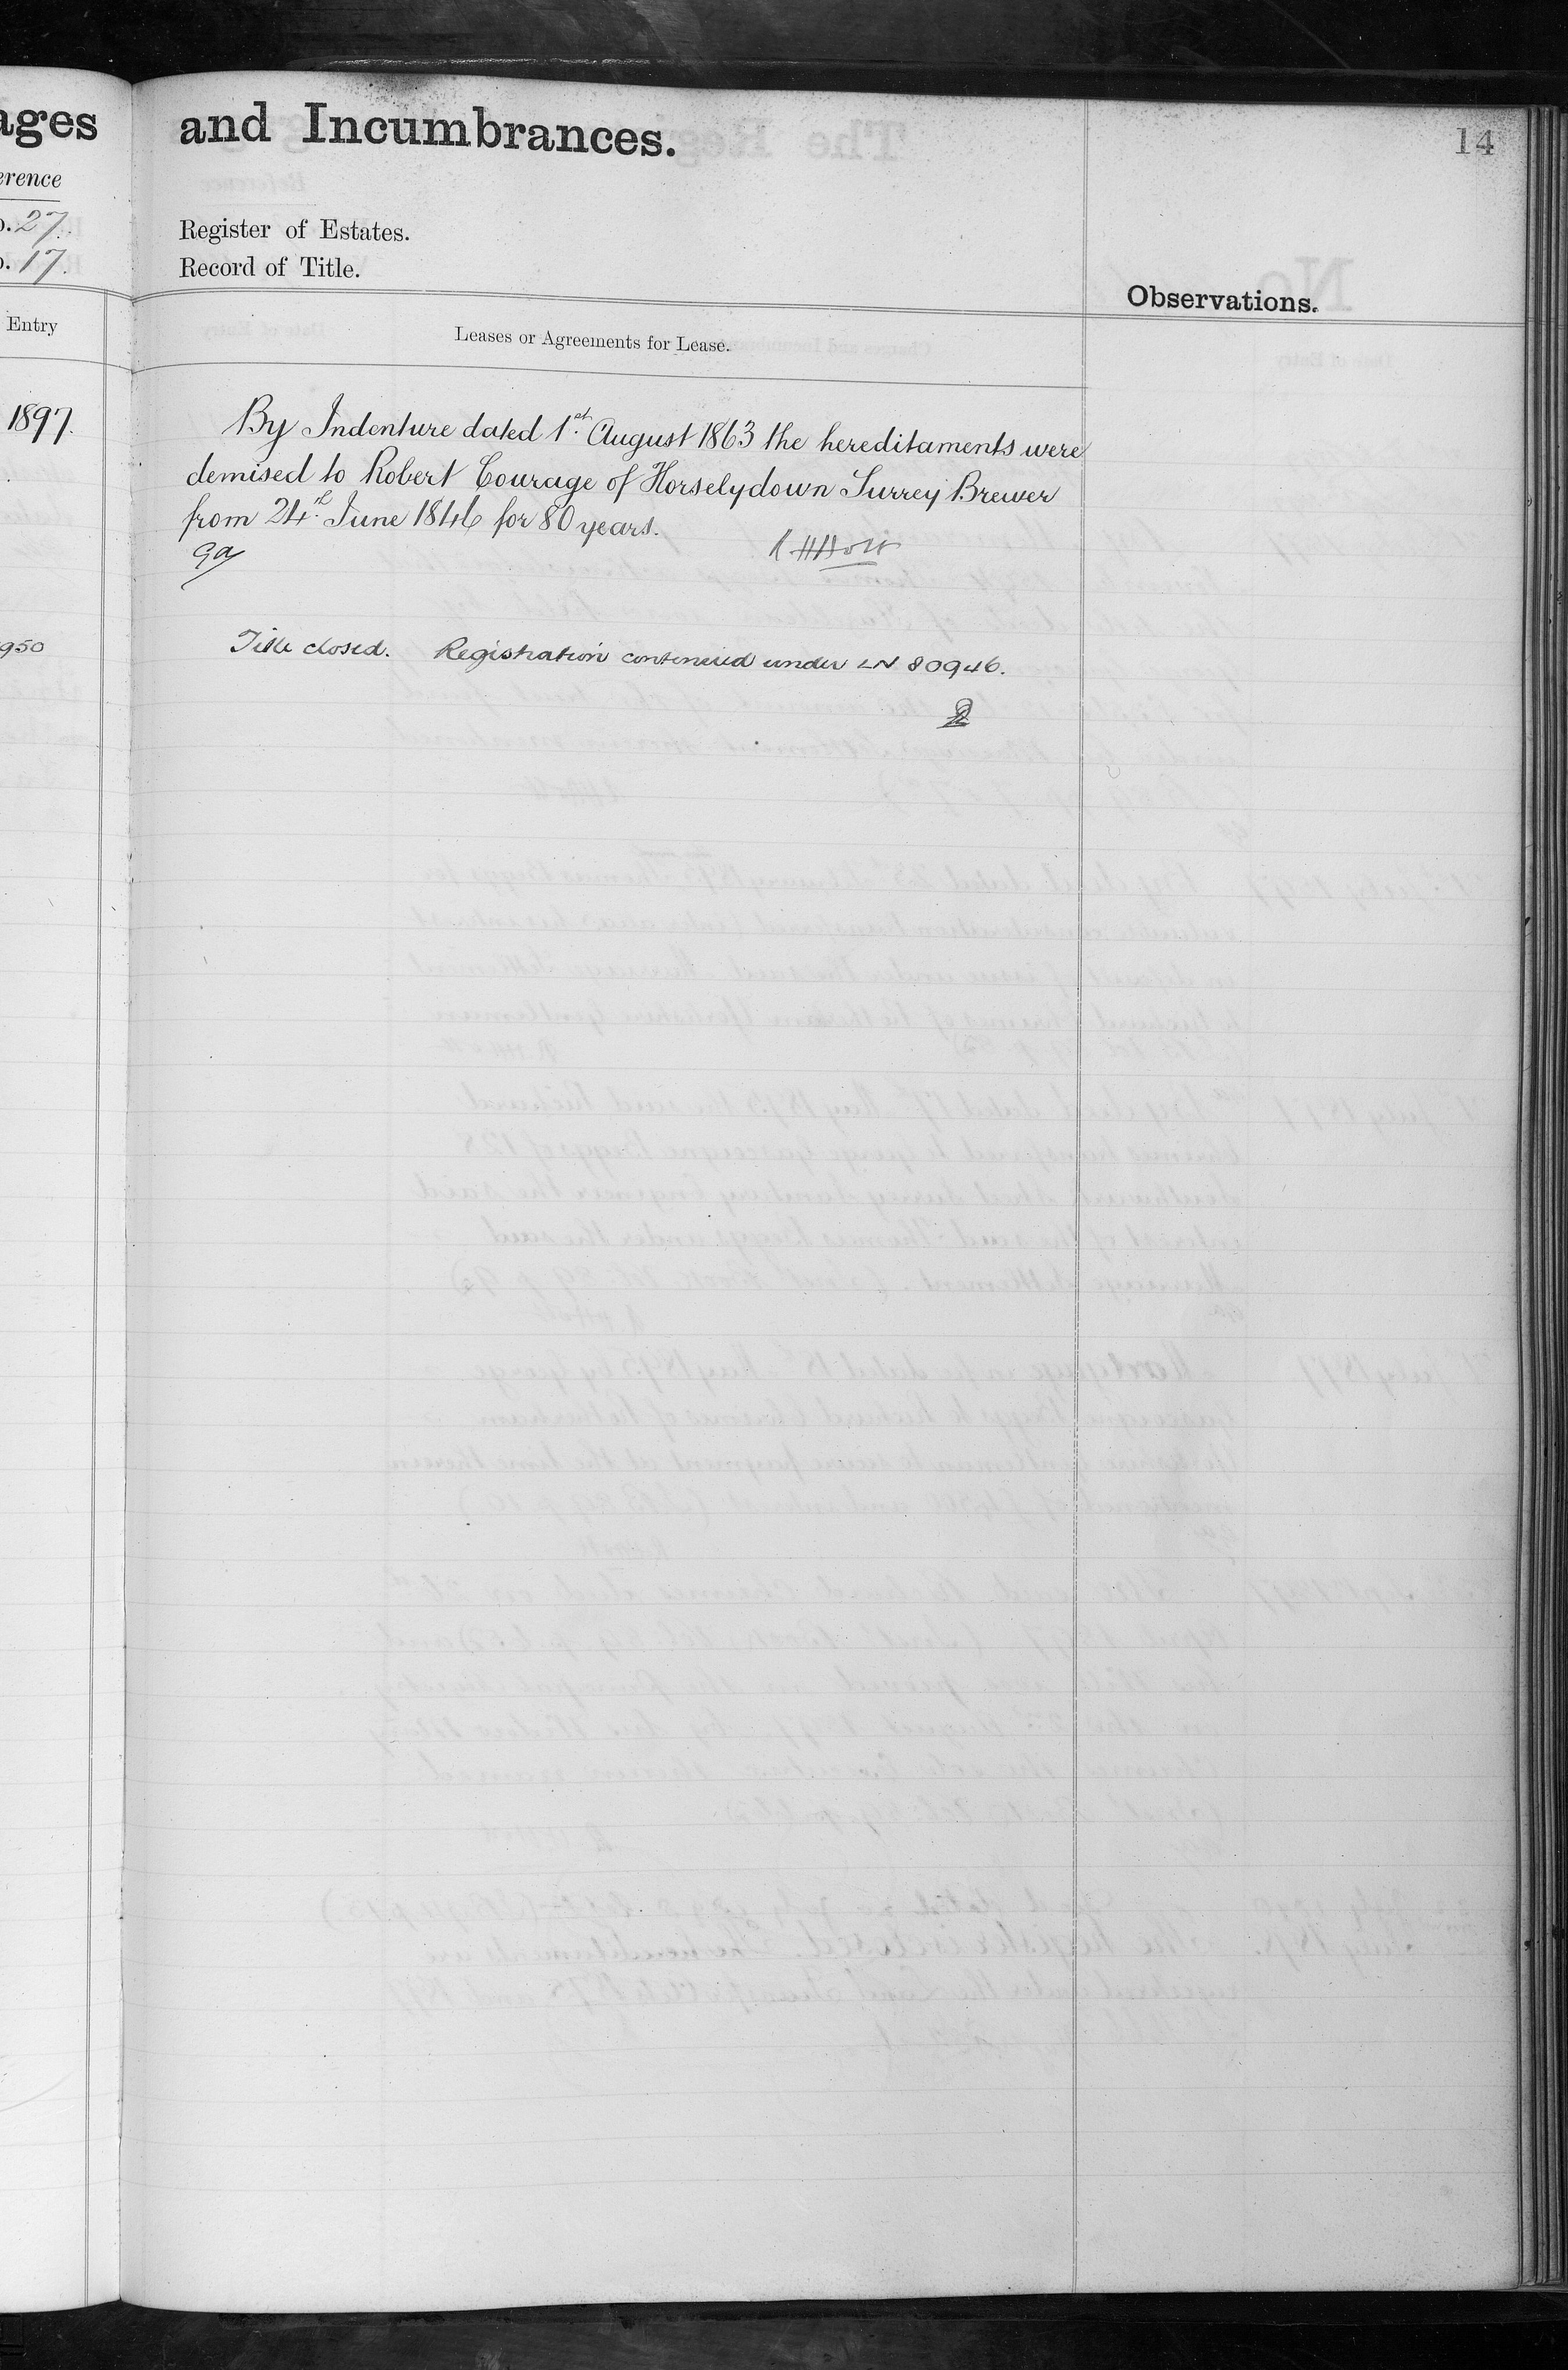 ages
erence
o. 27.
o. 17.
Entry
1897.
950
and Incumbrances.
14
Register of Estates.
Record of Title.
Observations.
Leases or Agreements for Lease.
By Indenture dated 1st. August 1863 the hereditaments were
demised to Robert Courage of Horselydown Surrey Brewer
from 24th. June 1846 for 80 years.
Title closed. Registration continued under LN 80946.